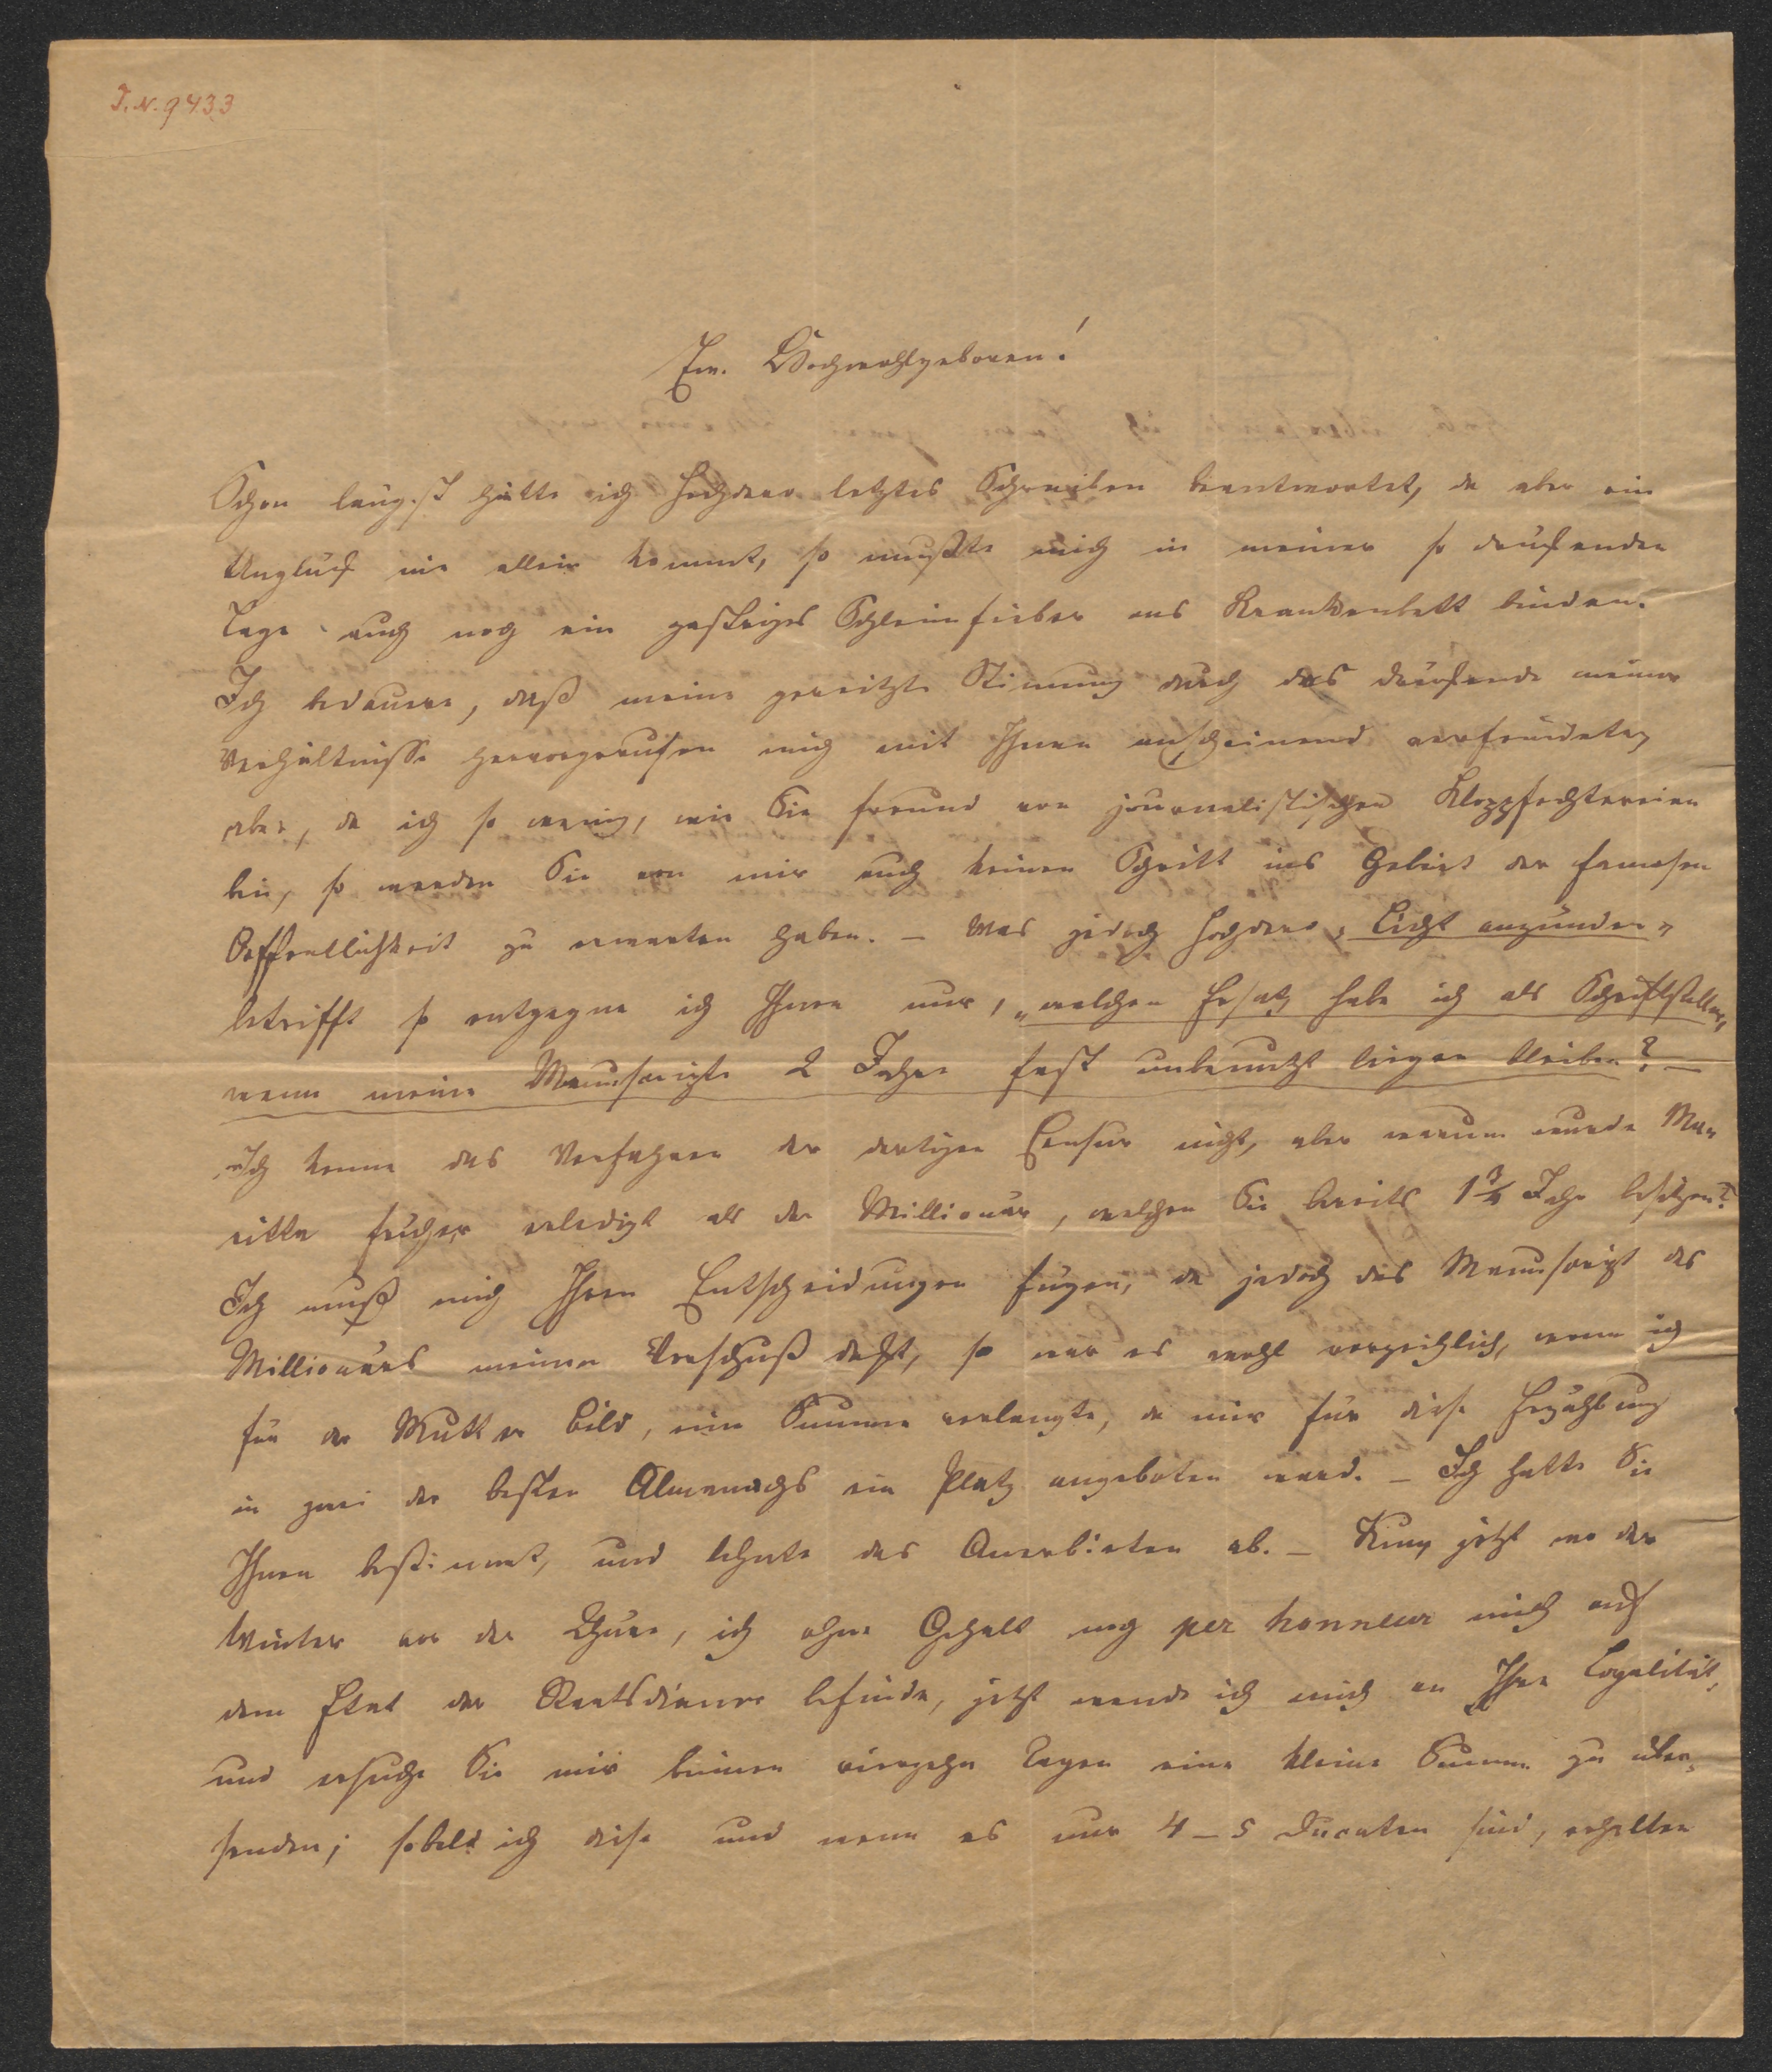 I. N. 9433
Ew. Hochwohlgeboren!
Schon längst hätte ich hochdero letztes Schreiben beantwortet, da aber ein
Unglück nie allein kommt, so mußte mich in meiner so drückenden
Lage auch noch ein gastriges Schleimfieber ans Krankenbett binden.
Ich bedauere, daß meine gereitzte Stimmung durch das drückende meiner
Verhältnisse hervorgerufen mich mit Ihnen anscheinend verfeindete,
aber, da ich so wenig, wie Sie freund von journalistischen Klopffechtereien
bin, so werden Sie von mir auch keinen Schritt ins Gebiet der famosen
Oeffentlichkeit zu erwarten haben. – Was jedoch hochdero „Licht anzünden"
betrifft so entgegne ich Ihnen nur, „welchen Ersatz habe ich als Schriftsteller,
wenn meine Manuscripte 2 Jahre fast unbenutzt liegen bleiben? –
Ich kenne das Verfahren der dortigen Censur nicht, aber warum wurde
früher erledigt als der Millionär, welchen Sie bereits 1¾ Jahr besitzen?
Ich muß mich Ihren Entscheidungen fügen, da jedoch das Manuscript des
Millionärs meinen Vorschuß deckt, so war es wohl verzeihlich, wenn ich
für der Mutter Bild, eine Summe verlangte, da mir für diese Erzählung
in zwei der besten Almanachs ein Platz angeboten ward. – Ich hatte Sie
Ihnen bestimmt, und lehnte das Anerbieten ab. – Nun jetzt wo der
Winter vor der Thüre, ich ohne Gehalt noch per honneur mich auf
dem Etat der Staatsdiener befinde, jetzt wende ich mich an Ihre Loyalität,
und ersuche Sie mir binnen vierzehn Tagen eine kleine Summe zu über-
senden; sobald ich diese und wenn es nur 4 – 5 Ducaten sind, erhalten